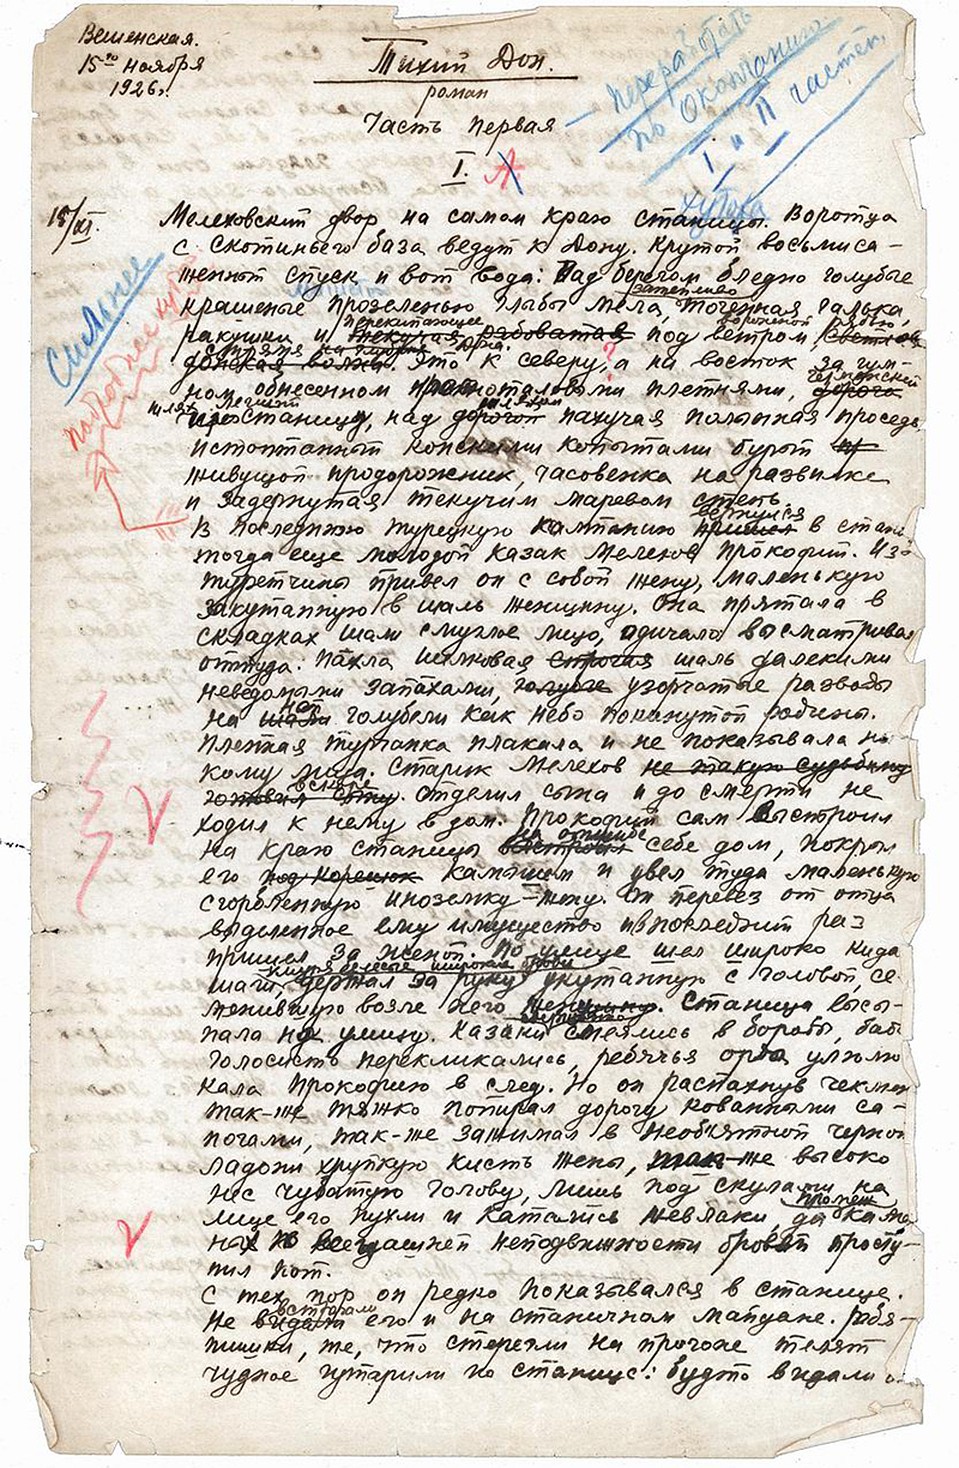 Вешенская.
15го ноября
1926г.
Тихий Дон.
роман
Часть Первая
I.
переработать
по окончанию
I и II частей
хутора
15/XI.
Мелеховский двор на самом краю станицы. Воротца
с скотиньего база ведут к Дону. Крутой восьмиса-
женный спуск и вот вода: Над берегом бледно голубые
затейливо
крашеные прозеленью глыбы мела, точенная галька,
перекипающее
ракушки и текучая рябоватая под ветром, светлая
донская волна. Это к северу, а на восток за гум-
ном обнесенном красноталовыми плетнями, дорога
станицу, над дорогой пахучая полынная проседь
истоптанный конскими копытами бурый
живущой придорожник, часовенка на развилке
и задернутая текучим маревом степь.
вернулся
В последнюю турецкую кампанию пришел в стани
тогда еще молодой казак Мелехов Прокофий. Из
туретчины привел он с собой жену, маленькую
закутанную в шаль женщину. Она прятала в
складках шали смуглое лицо, одичало высматривая
оттуда. Пахла шелковая строгая шаль далекими
неведомыми запахами, голубые узорчатые разводы
на ней голубели как небо покинутой родины.
Пленная турчанка плакала и не показывала ни
кому лица. Старик Мелехов не такую судьбину
вскоре
готовил сыну. отделил сына и до смерти не
ходил к нему в дом. Прокофий сам выстроил
на отшибе
на краю станицы выстроил себе дом, покрыл
его под корешок камышом и увел туда маленькую
сгорбленную иноземку-жену. Он перевез от отца
выделенное ему имущество и в последний раз
пришел за женой. По улице шел широко кидая
шаги, держал за руку укутанную с головой, се-
менившую возле него женщину. Станица высы-
пала на улицу. Казаки смеялись в бороды, бабы
голосисто перекликались, ребячья орда улюлю
кала Прокофию в след. Но он распахнув чекмень
так-же тяжко попирал дорогу коваными са-
погами, так-же зажимал в необъятной черной
ладони хрупкую кисть жены, так-же высоко
нес чубатую голову, лишь под скулами на
промеж
лице его пухли и катались желваки, да камен
ных в всегдашней неподвижности бровей просту-
пил пот.
С тех пор он редко показывался в станице.
встречали
Не видели его и на станичном майдане. Рябя-
тишки, те, что стерегли на прогоне телят
чудное гутарили по станице: будто видали
Сильнее
подробнее